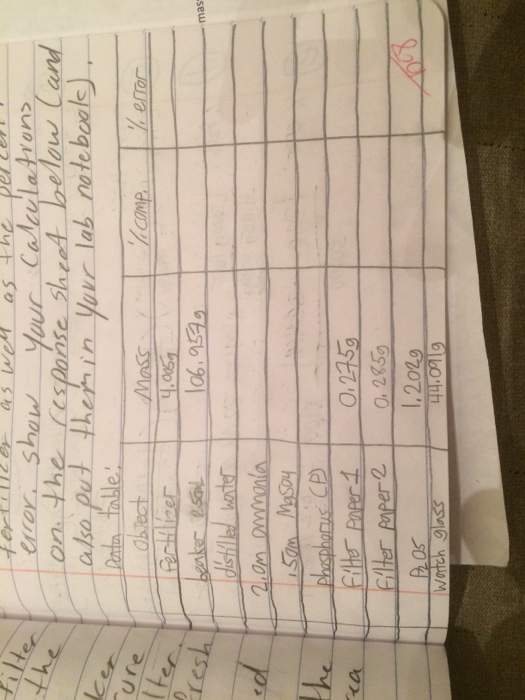 fertilizer as well as the percent
error. show your calculations
on the response sheet below (and
also put them in your lab notebook).
Data table:
object Mass % comp. % error
Fertilizer 4.985g
beaker 250mL 106.957g
distilled water
2.0m ammonia
.50m MgSO4
phosphorus (P)
Filter paper 1 0.275g
Filter paper 2 0.285g
P2O5 1.202g
Watch glass 44.091g
filter
the
ker
ure
lter.
fresh
ed
the
mas